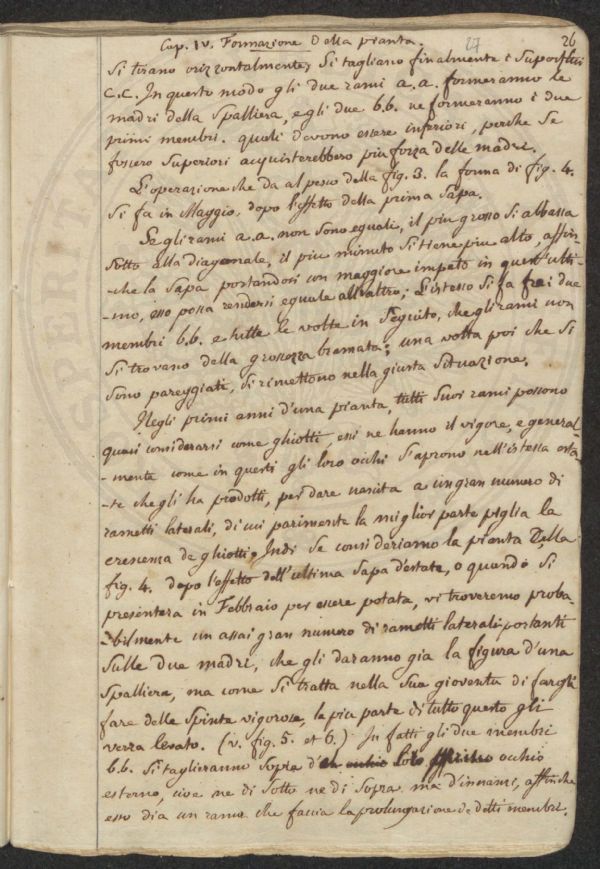 Cap. IV. Formazione Della pianta. 27 26
Si tirano orizzontalmente, Si tagliano finalmente i Superflui
C.C. In questo modo gli due rami a.a. formeranno le
madri della Spalliera, e gli due b.b. ne formeranno i due
primi membri. quali devono essere inferiori, perche Se
fossero Superiori acquisterebbero piu forza delle madri.
L'operazione che da al pesco della fig. 3. la forma di fig. 4.
Si fa in Maggio, dopo l'effetto della prima Sapa.
Se gli rami a.a. non sono eguali, il piu grosso Si abbassa
Sotto alla diagonale, il piu minuto Si tiene piu alto, affin-
-che la Sapa portandosi con maggiore impeto in quest'ulti-
-mo, esso possa rendersi eguale all'altro; L'istesso Si fa fra i due
membri b.b. e tutte le volte in Seguito, che gli rami non
Si trovano della grossezza bramata; una volta poi che Si
Sono pareggiati, Si rimettono nella giusta Situazione.
Negli primi anni d'una pianta, tutti Suoi rami possono
quasi considerarsi come ghiotti, essi ne hanno il vigore, e general-
-mente come in questi gli loro occhi S'aprono nell'istessa esta-
-te che gli ha prodotti, per dare nascita a un gran numero di
rametti laterali, di cui parimente la miglior parte piglia la
crescenza de ghiotti. Indi Se consideriamo la pianta Della
fig. 4. dopo l'effetto dell'ultima Sapa d'estate, o quando Si
presenterà in Febbraio per essere potata, vi troveremo proba-
-bilmente un assai gran numero di rametti laterali portanti
Sulle due madri, che gli daranno già la figura d'una
Spalliera, ma come Si tratta nella Sua gioventù di fargli
fare delle Spinte vigorose, la piu parte di tutto questo gli
verrà levato. (v. fig. 5. et 6.) In fatti gli due membri
b.b. Si taglieranno Sopra d' occhio
esterno, cioe ne di Sotto ne di Sopra ma d'innanzi, affinche
esso dia un ramo che faccia la prolungazione de detti membri.